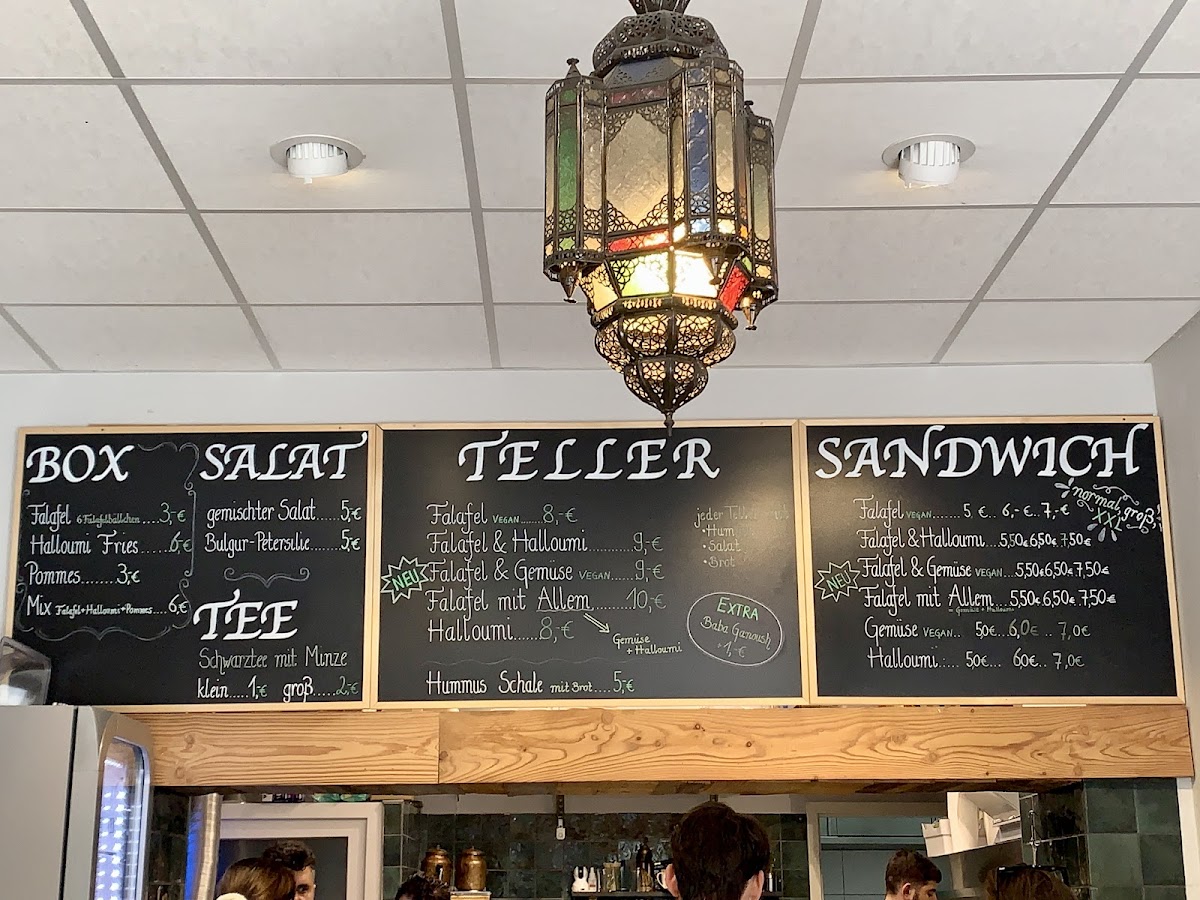 BOX
Falafel 6 Falafelbällchen....3,-€
Halloumi Fries......6€
Pommes........3,-€
Mix Falafel+Halloumi+Pommes....6€
SALAT
gemischter Salat......5,-€
Bulgur-Petersilie.......5,-€
TEE
Schwarztee mit Minze
klein.....1,-€ groß.....2,-€
TELLER
Falafel VEGAN.......8,-€
Falafel & Halloumi...........9,-€
NEU Falafel & Gemüse VEGAN......9,-€
Falafel mit Allem.........10,-€
Halloumi......8,-€
Gemüse
+ Halloumi
Hummus Schale mit Brot.....5,-€
jeder
• Hum
• Salat
• Brot
EXTRA
Baba Ganoush
1,-€
SANDWICH
normal, groß,
XXL
Falafel VEGAN....... 5 €... 6,-€... 7,-€
Falafel & Halloumi....5,50€ 6,50€ 7,50€
NEU Falafel & Gemüse VEGAN....5,50€ 6,50€ 7,50€
Falafel mit Allem....5,50€ 6,50€ 7,50€
Gemüse + Halloumi
Gemüse VEGAN..
Halloumi